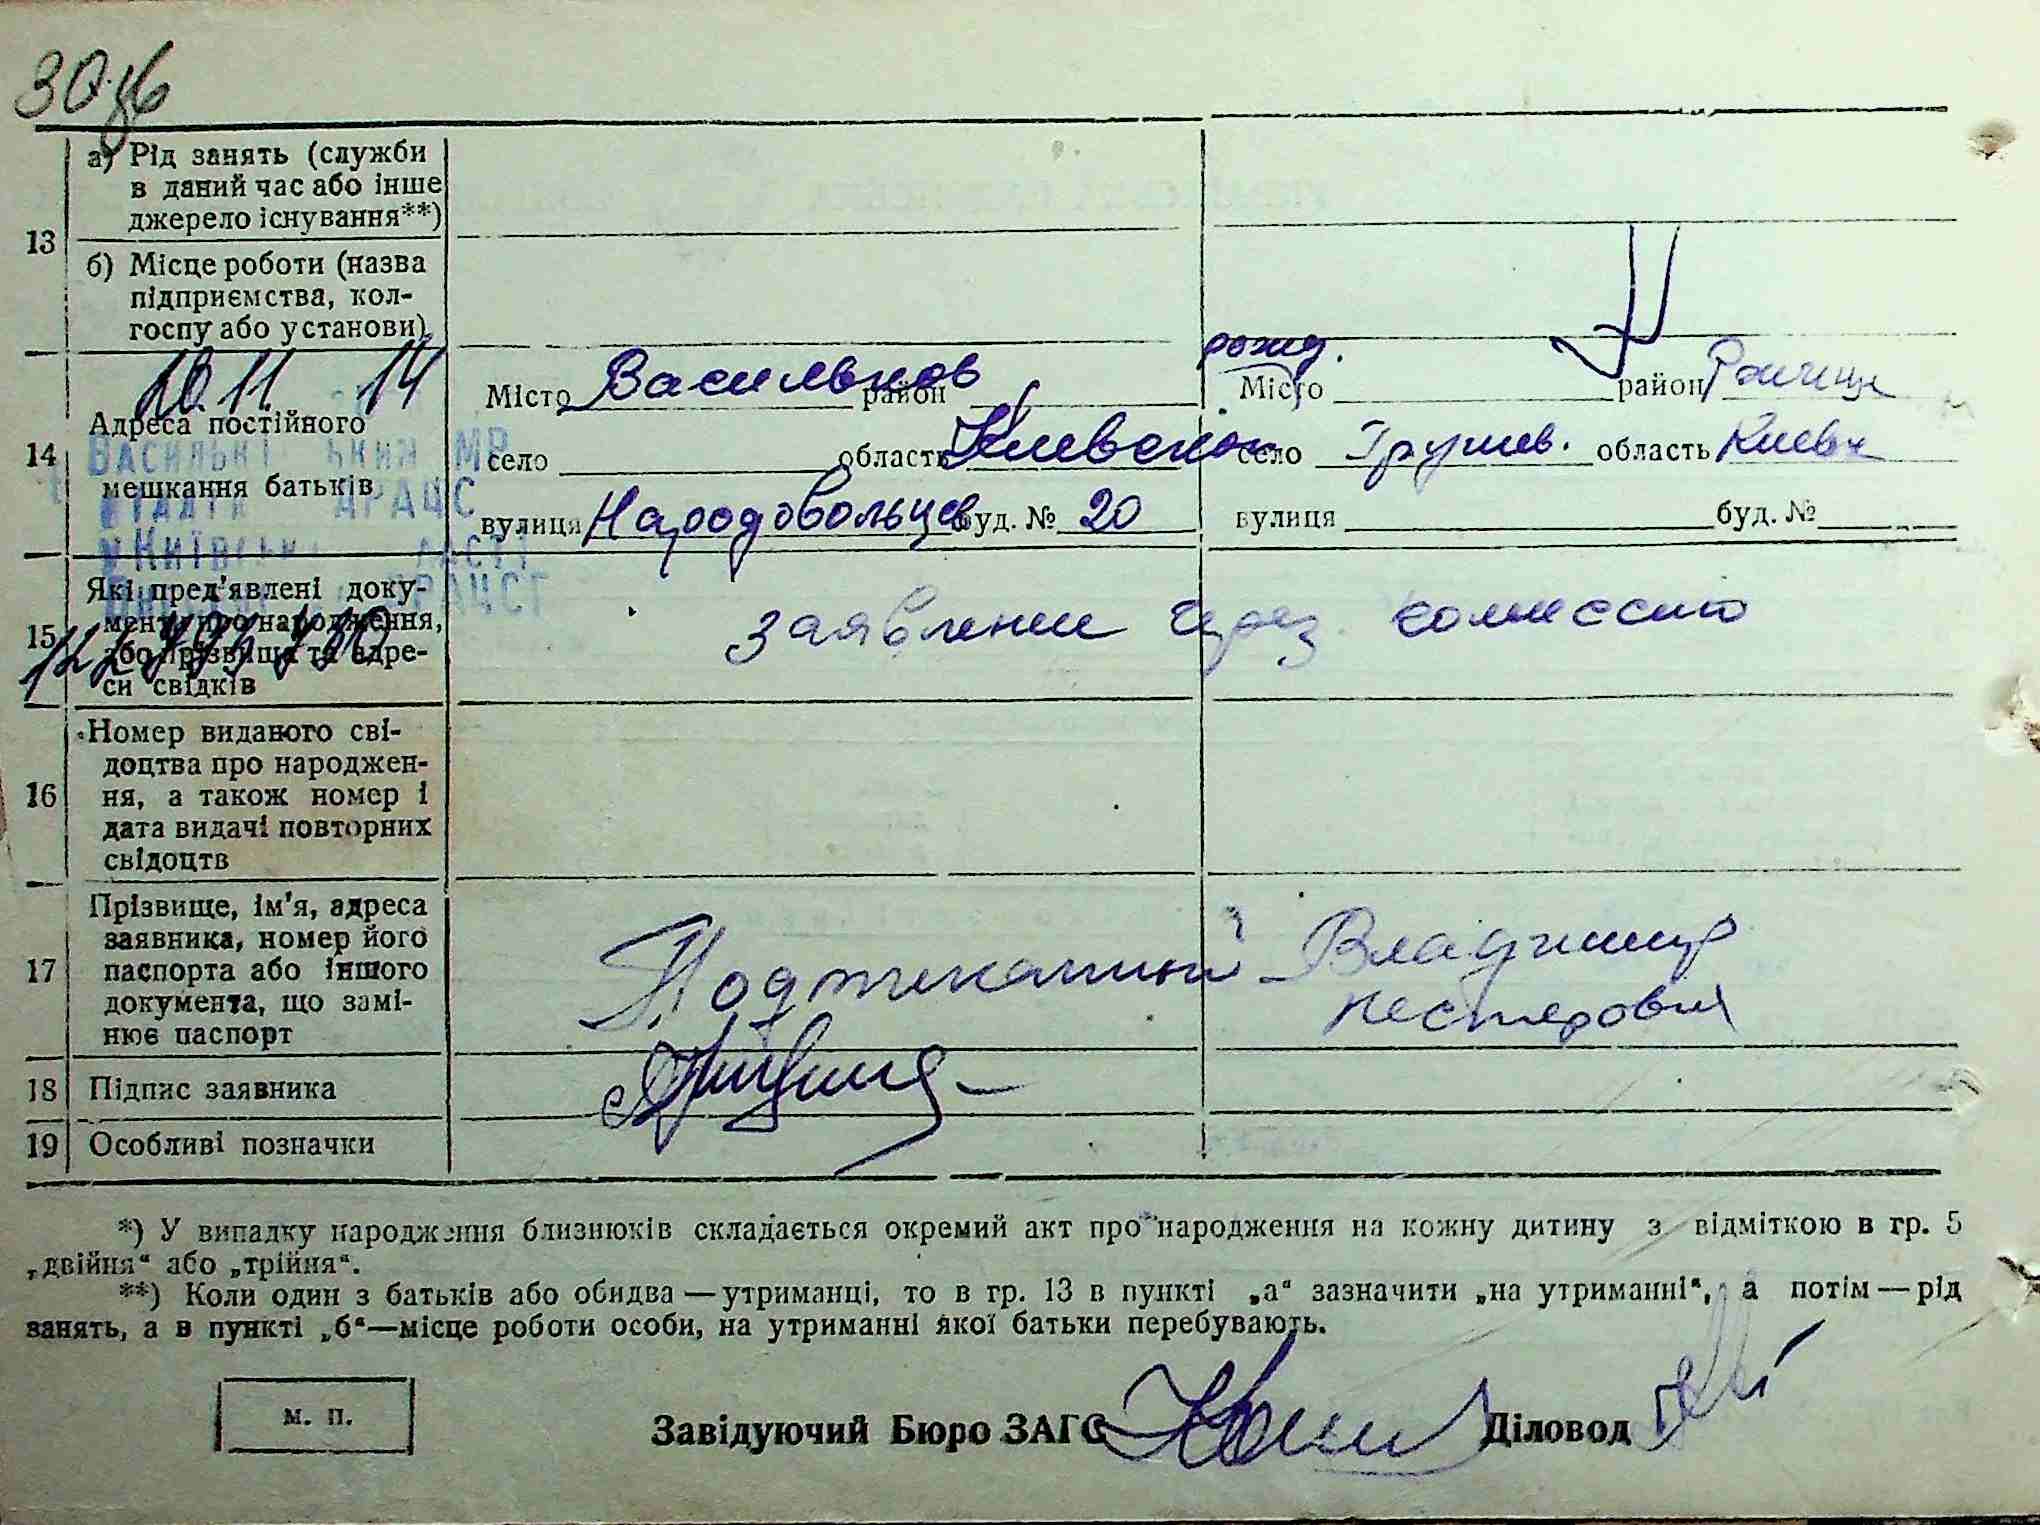 13
а) Рід занять (служби
в даний час або інше
джерело існування**)
б) Місце роботи (назва
підприємства, кол-
госпу або установи)
10.11. 14
14
Адреса постійного
мешкання батьків
Місто Васильков район
село область Киевской
вулиця Народовольцев буд. № 20
рожд.
Місто район
село Грушев. область Киевск
вулиця буд. №
15
Які пред'явлені доку-
менти про народження,
або прізвища та адре-
си свідків
заявление через комиссию
16
Номер виданого сві-
доцтва про народжен-
ня, а також номер і
дата видачі повторних
свідоцтв
17
Прізвище, ім'я, адреса
заявника, номер його
паспорта або іншого
документа, що замі-
нює паспорт
Владимир
Нестерович
18 Підпис заявника
19 Особливі позначки
*) У випадку народження близнюків складається окремий акт про народження на кожну дитину з відміткою в гр. 5
„двійня“ або „трійня“.
**) Коли один з батьків або обидва — утриманці, то в гр. 13 в пункті „а“ зазначити „на утриманні“, а потім — рід
занять, а в пункті „б“—місце роботи особи, на утриманні якої батьки перебувають.
м. п.
Завідуючий Бюро ЗАГС Діловод